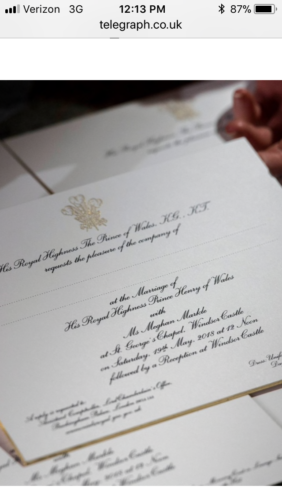 Verizon 3G 12:13 PM 87%
telegraph.co.uk
His Royal Highness The Prince of Wales, K.G., K.T.
requests the pleasure of the company of
at the Marriage of
His Royal Highness Prince Henry of Wales
with
Ms Meghan Markle
at St. George's Chapel, Windsor Castle
on Saturday, 19th May, 2018 at 12 Noon
followed by a Reception at Windsor Castle
A reply is requested to
Buckingham Palace, London
Ms Meghan Markle
Windsor Castle
12 Noon